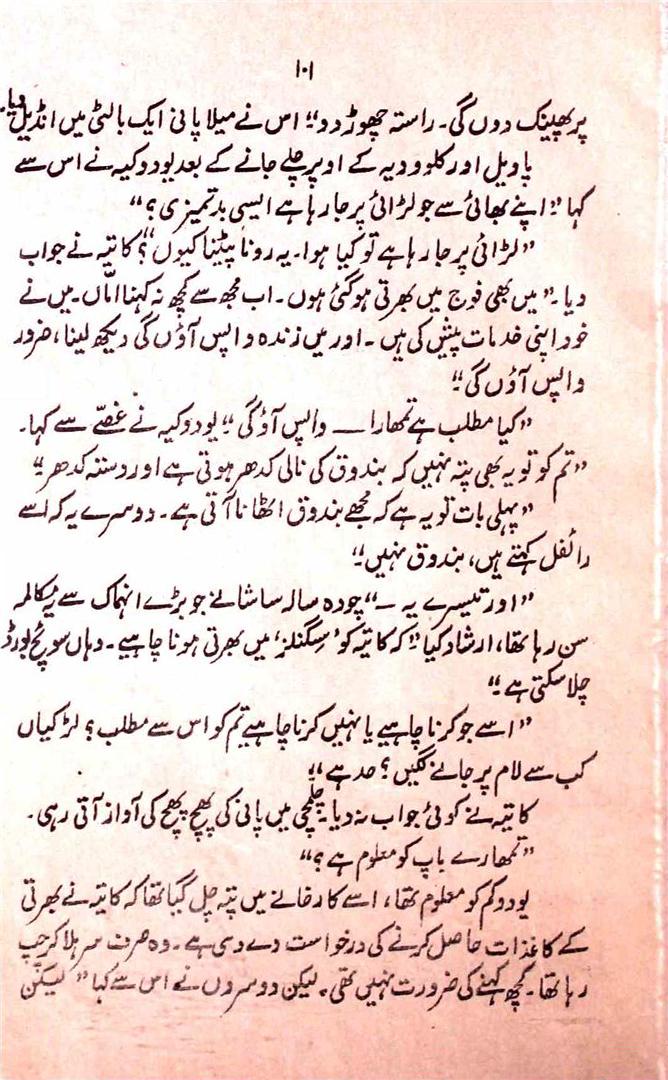 ۱۰۱
پر پھینک دوں گی۔ راستہ چھوڑ دو“ اس نے میلا پانی ایک بالٹی میں انڈیل دیا۔
پاویل اور کلوودیہ کے اوپر چلے جانے کے بعد یودوکیہ نے اس سے
کہا ”اپنے بھائی سے جو لڑائی پر جا رہا ہے ایسی بدتمیزی؟“
”لڑائی پر جا رہا ہے تو کیا ہوا۔ یہ رونا پیٹنا کیوں“؟ کاتیہ نے جواب
دیا۔ ”میں بھی فوج میں بھرتی ہو گئی ہوں۔ اب مجھ سے کچھ نہ کہنا اماں۔ میں نے
خود اپنی خدمات پیش کی ہیں۔ اور میں زندہ واپس آؤں گی دیکھ لینا، ضرور
واپس آؤں گی“
”کیا مطلب ہے تمھارا ـــ واپس آؤ گی“ یودوکیہ نے غصّے سے کہا۔
”تم کو تو یہ بھی پتہ نہیں کہ بندوق کی نالی کدھر ہوتی ہے اور دستہ کدھر“
”پہلی بات تو یہ ہے کہ مجھے بندوق اٹھانا آتی ہے۔ دوسرے یہ کہ اسے
رائفل کہتے ہیں، بندوق نہیں“
”اور تیسرے یہ ـ“ چودہ سالہ ساشا نے جو بڑے انہماک سے یہ مکالمہ
سن رہا تھا، ارشاد کیا ”کہ کاتیہ کو ’سگنلز‘ میں بھرتی ہونا چاہیے۔ وہاں سوئچ بورڈ
چلا سکتی ہے“
”اسے جو کرنا چاہیے یا نہیں کرنا چاہیے تم کو اس سے مطلب؟ لڑکیاں
کب سے لام پر جانے لگیں؟ حد ہے“
کاتیہ نے کوئی جواب نہ دیا۔ چلمچی میں پانی کی چھپ چھپ کی آواز آتی رہی۔
”تمھارے باپ کو معلوم ہے؟“
یودوکم کو معلوم تھا، اسے کارخانے میں پتہ چل گیا تھا کہ کاتیہ نے بھرتی
کے کاغذات حاصل کرنے کی درخواست دے دی ہے۔ وہ صرف سر ہلا کر چپ
رہا تھا۔ کچھ کہنے کی ضرورت نہیں تھی۔ لیکن دوسروں نے اس سے کہا ”لیکن